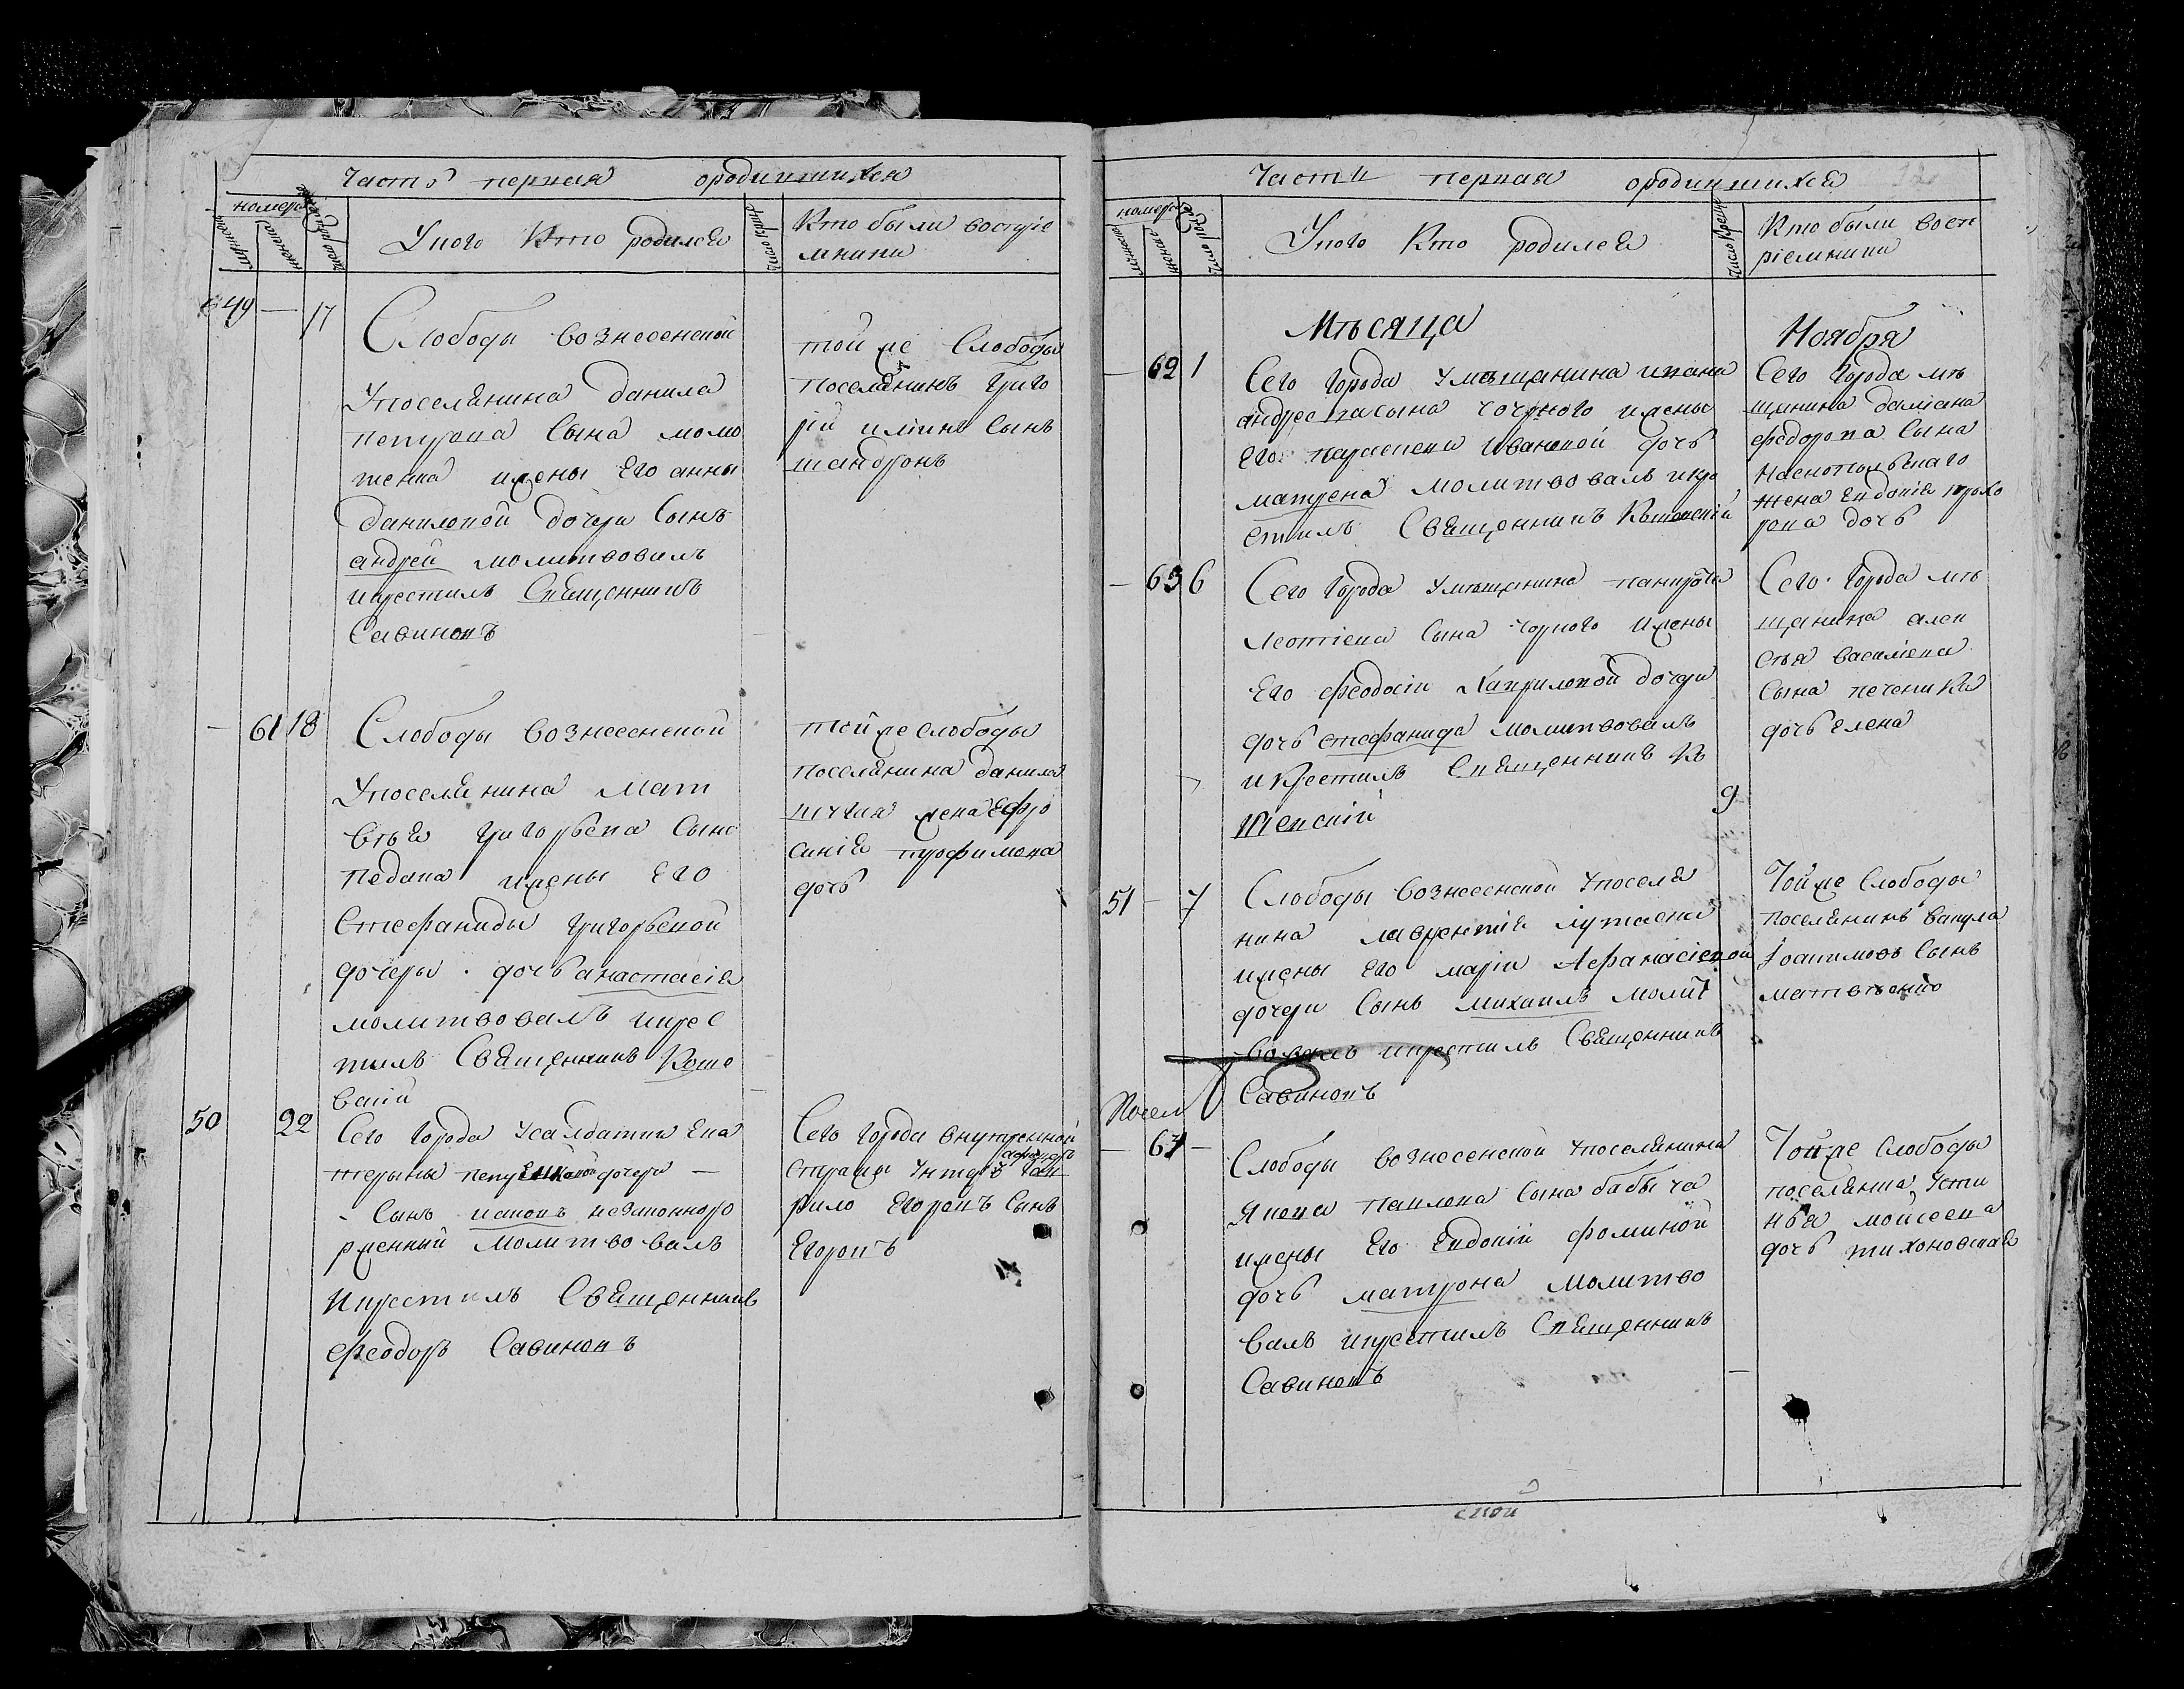 Часть первая о родившихся
номера
мужеска
женска
число рожде
У кого кто родился
число креще
Кто были воспріе
мники
49 — 17
Слободы вознесенской
у поселянина данила
петрова Сына момо
тенка и жены Его анны
даниловой дочери Сынъ
андрей молитвовалъ
и крестилъ Священникъ
Савиновъ
той же Слободы
поселянинъ Григо
рій илiинъ Сынъ
шандронъ
— 61 18
Слободы вознесенской
у поселянина Мат
вѣя григорьева Сына
педана и жены Его
Стефаниды григорьевой
дочеры . дочь анастасія
молитвовалъ и крес
тилъ Священникъ
той же слободы
поселянина данила
жена Ефро
синія трофимова
дочь
50 22
Сего города у салдатки Ека
терыны дочери —
Сынъ іаковъ незаконноро
жденный молитвовалъ
и крестилъ Священникъ
феодоръ Савиновъ
Сего города внутренной
стражи унтеръ Гав
рило Егоровъ Сынъ
Егоровъ
Часть первая о родившихся
номера
мужеска
женска
число рожд
У кого кто родился
число креще
Кто были восп
ріемники
Мѣсяца Ноября
— 62 1
Сего города у мѣщанина ивана
андреева сына чорного и жены
Его параскеви ивановой дочь
матрена молитвовалъ и кре
стилъ Священникъ
Сего города мѣ
щанина даміана
федорова Сына
жена Евдокія прохо
рова дочь
— 63 6
Сего города у мѣщанина
леонтіева Сына чорного и жены
Его феодосіи гавриловой дочери
дочь стефанида молитвовалъ
и крестилъ Священникъ
9
Сего города мѣ
щанина алек
сѣя василіева
Сына печеника
дочь Елена
51 — 7
Слободы вознесенской у поселя
нина лаврентія лукаева
и жены Его маріи Афанасіевой
дочери Сынъ михаилъ молит
вовалъ и крестилъ Священникъ
Савиновъ
Той же Слободы
поселянинъ вакула
іоакимовъ Сынъ
матвѣенко
— 64 —
Слободы вознесенской у поселянина
якова павлова Сына бабыча
и жены Его Евдокіи фоминой
дочь матрона молитво
валъ и крестилъ Священникъ
Савиновъ
Той же Слободы
поселянка Усти
нья моисеева
дочь тихоновская